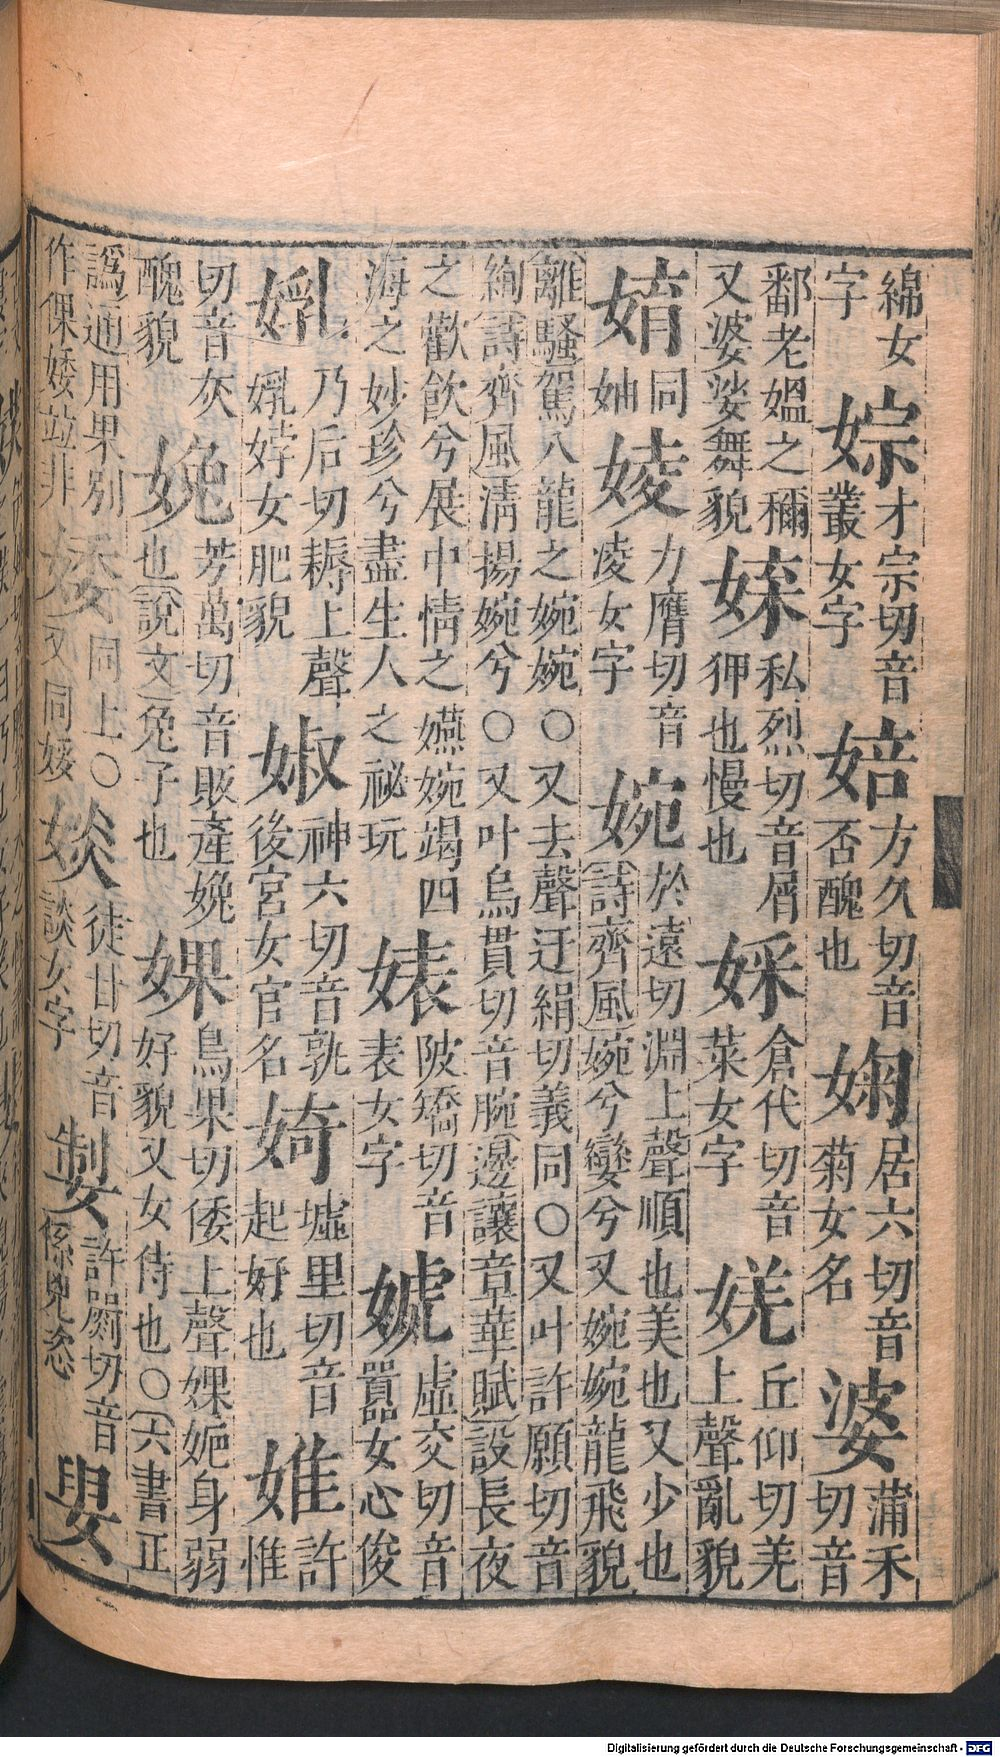 綿女
字
婃
才宗切音
叢女字
婄
方久切音
否醜也
婅
居六切音
菊女名
婆
蒲禾
切音
鄱老媼之稱
又婆娑舞貌
私烈切音屑
狎也慢也
婇
倉代切音
菜女字
丘仰切羌
上聲亂貌
同
妯
婈
力膺切音
凌女字
婉
於遠切淵上聲順也美也又少也
詩齊風婉兮孌兮又婉婉龍飛貌
離騷駕八龍之婉婉○又去聲迂絹切義同○又叶許願切音
絢詩齊風淸揚婉兮○又叶烏貫切音腕邊讓章華賦設長夜
之歡飲兮展中情之嬿婉竭四
海之妙珍兮盡生人之祕玩
婊
陂矯切音
表女字
婋
虛交切音
囂女心俊
乃后切耨上聲
婞女肥貌
婌
神六切音孰
後宮女官名
婍
墟里切音
起好也
婎
許
惟
切音灰
醜貌
娩
芳萬切音販產娩
也說文兔子也
婐
烏果切倭上聲婐妮身弱
好貌又女侍也○六書正
譌通用果別
作倮婑竝非
婑
同上○
又同
婒
徒甘切音
談女字
許罽切音
係兇恣